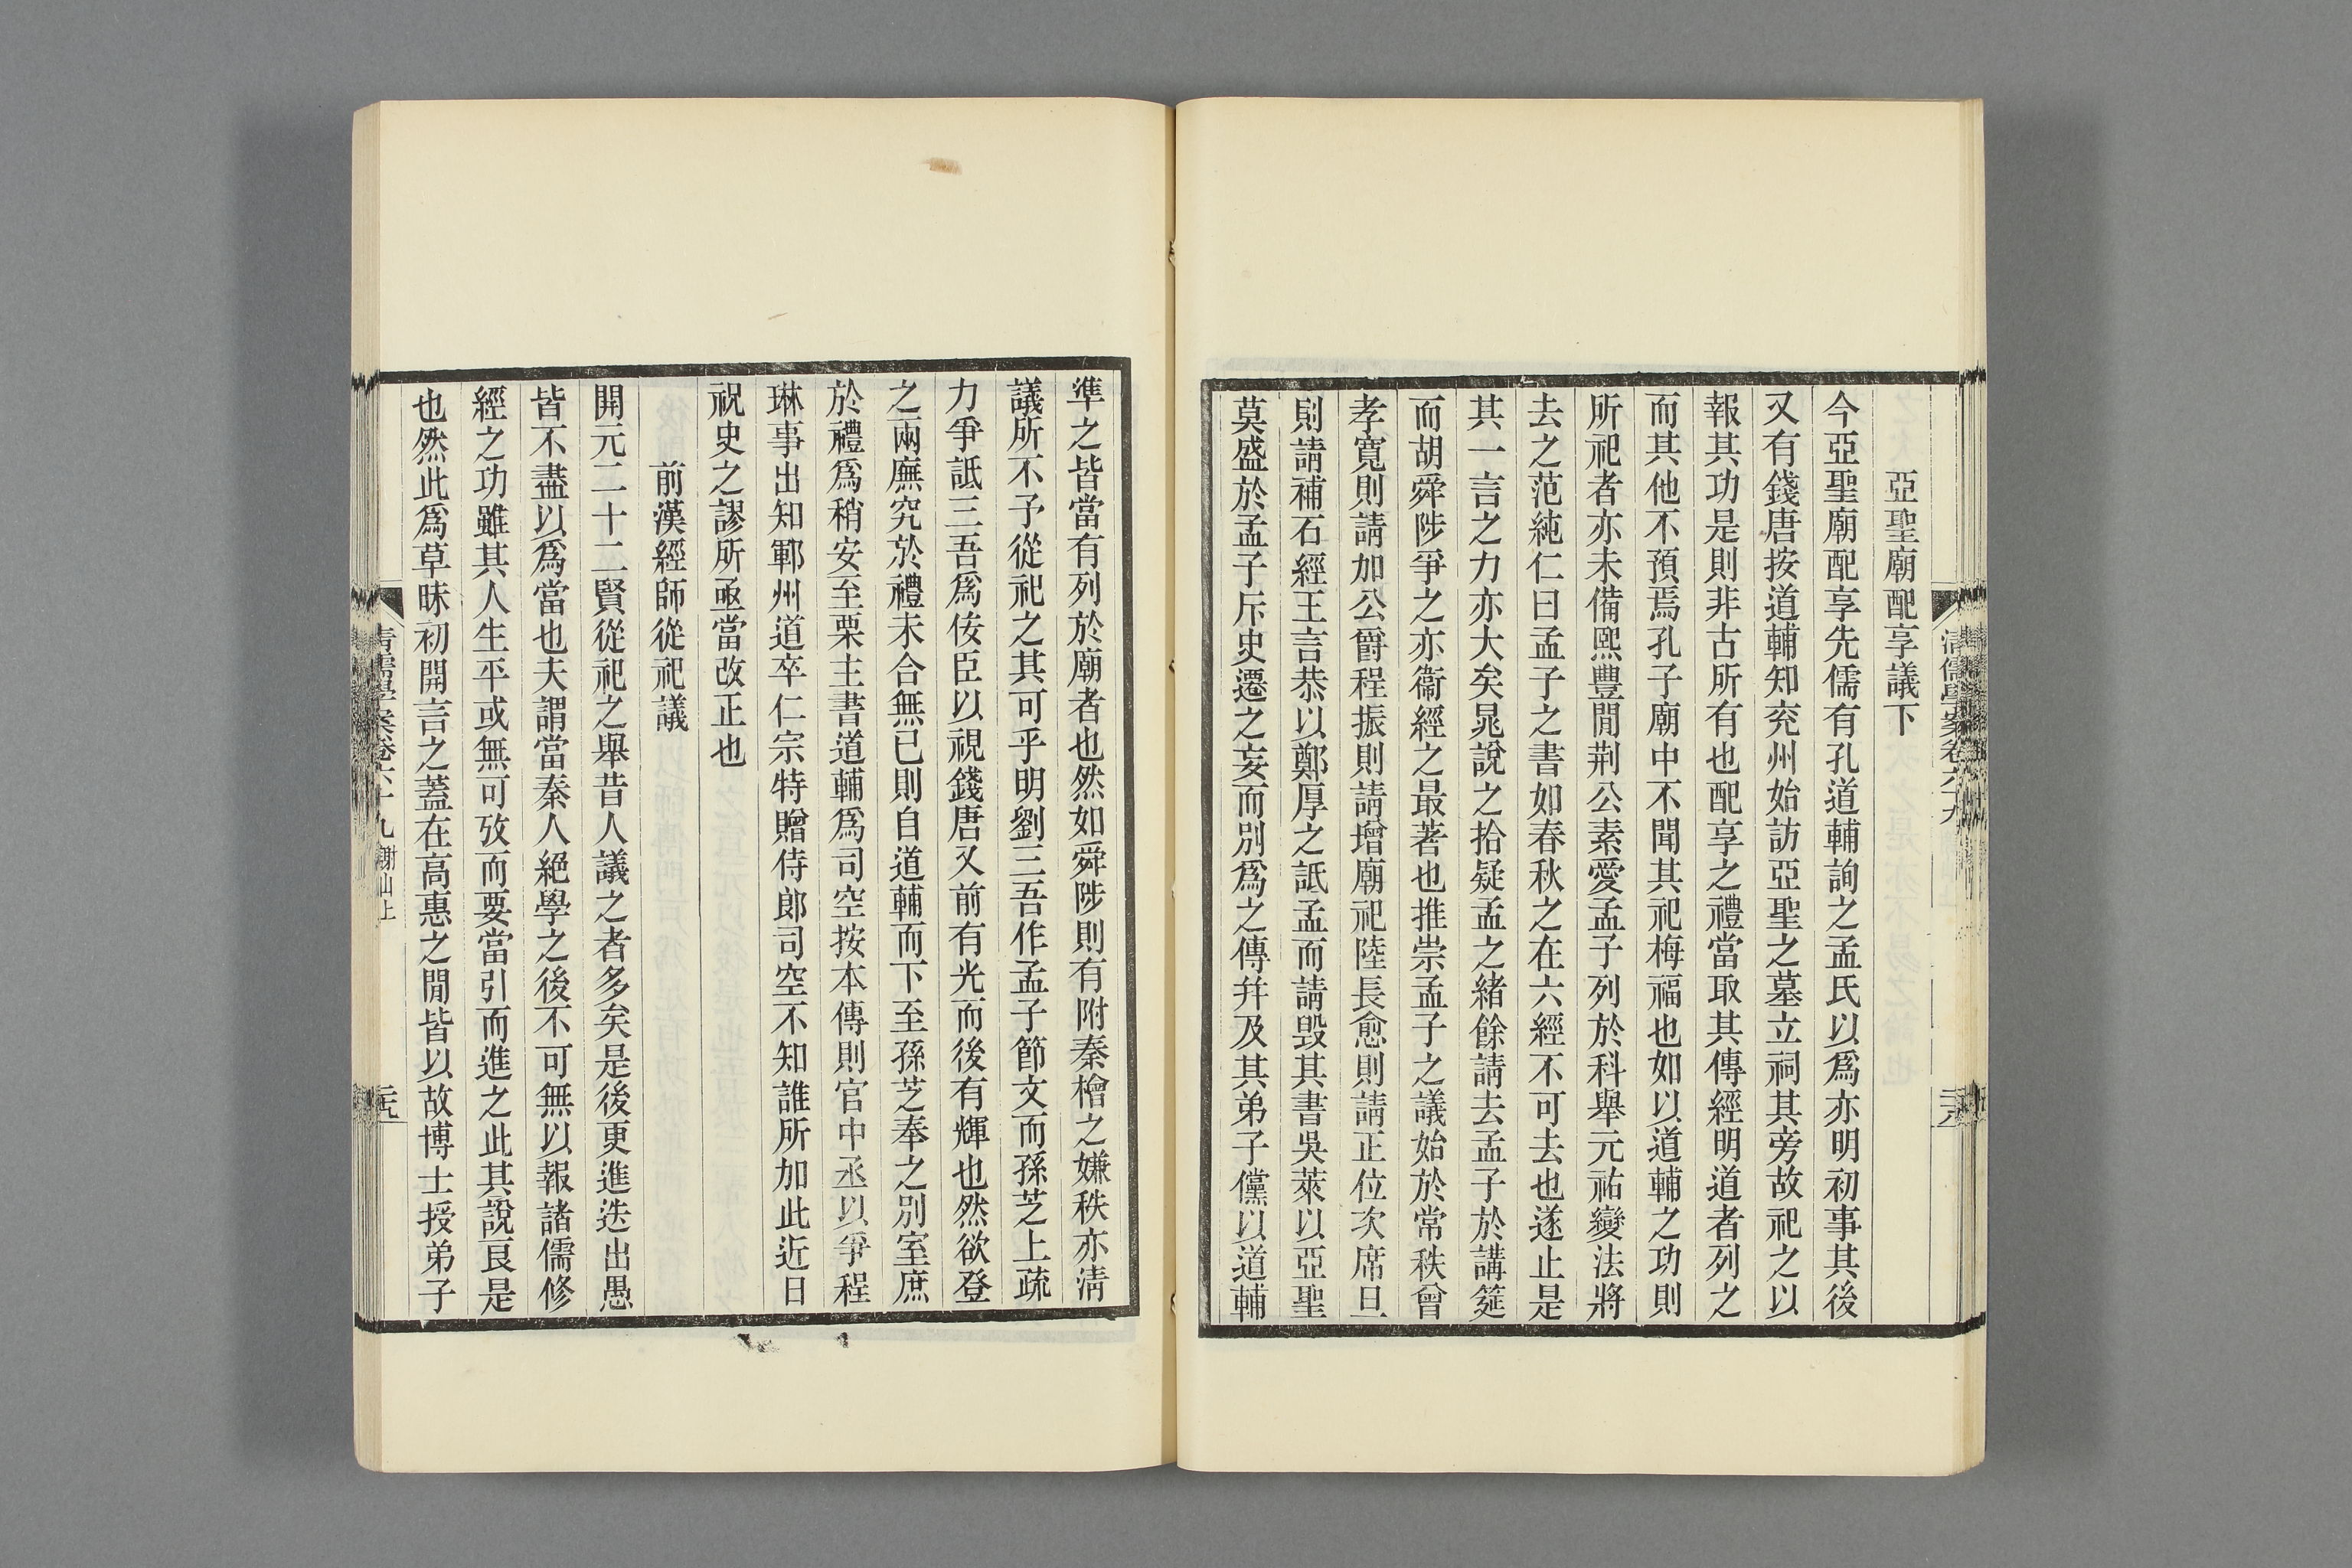 亞聖廟配享議下
今亞聖廟配享先儒有孔道輔詢之孟氏以爲亦明初事其後
又有錢唐按道輔知兖州始訪亞聖之墓立祠其旁故祀之以
報其功是則非古所有也配享之禮當取其傳經明道者列之
而其他不預焉孔子廟中不聞其祀梅福也如以道輔之功則
所祀者亦未備熙豐閒荆公素愛孟子列於科舉元祐變法將
去之范純仁曰孟子之書如春秋之在六經不可去也遂止是
其一言之力亦大矣晁說之拾疑孟之緒餘請去孟子於講筵
而胡舜陟爭之亦衞經之最著也推崇孟子之議始於常秩曾
孝寬則請加公爵程振則請增廟祀陸長愈則請正位次席旦
則請補石經王言恭以鄭厚之詆孟而請毀其書吳萊以亞聖
莫盛於孟子斥史遷之妄而別爲之傳幷及其弟子儻以道輔
準之皆當有列於廟者也然如舜陟則有附秦檜之嫌秩亦清
議所不予從祀之其可乎明劉三吾作孟子節文而孫芝上疏
力爭詆三吾爲佞臣以視錢唐又前有光而後有輝也然欲登
之兩廡究於禮未合無已則自道輔而下至孫芝奉之別室庶
於禮爲稍安至栗主書道輔爲司空按本傳則官中丞以爭程
琳事出知鄆州道卒仁宗特贈侍郎司空不知誰所加此近日
祝史之謬所亟當改正也
前漢經師從祀議
開元二十二賢從祀之舉昔人議之者多矣是後更進迭出愚
皆不盡以爲當也夫謂當秦人絕學之後不可無以報諸儒修
經之功雖其人生平或無可攷而要當引而進之此其說良是
也然此爲草昧初開言之蓋在高惠之閒皆以故博士授弟子
清儒學案卷六十九
清儒學案卷六十九 謝山上